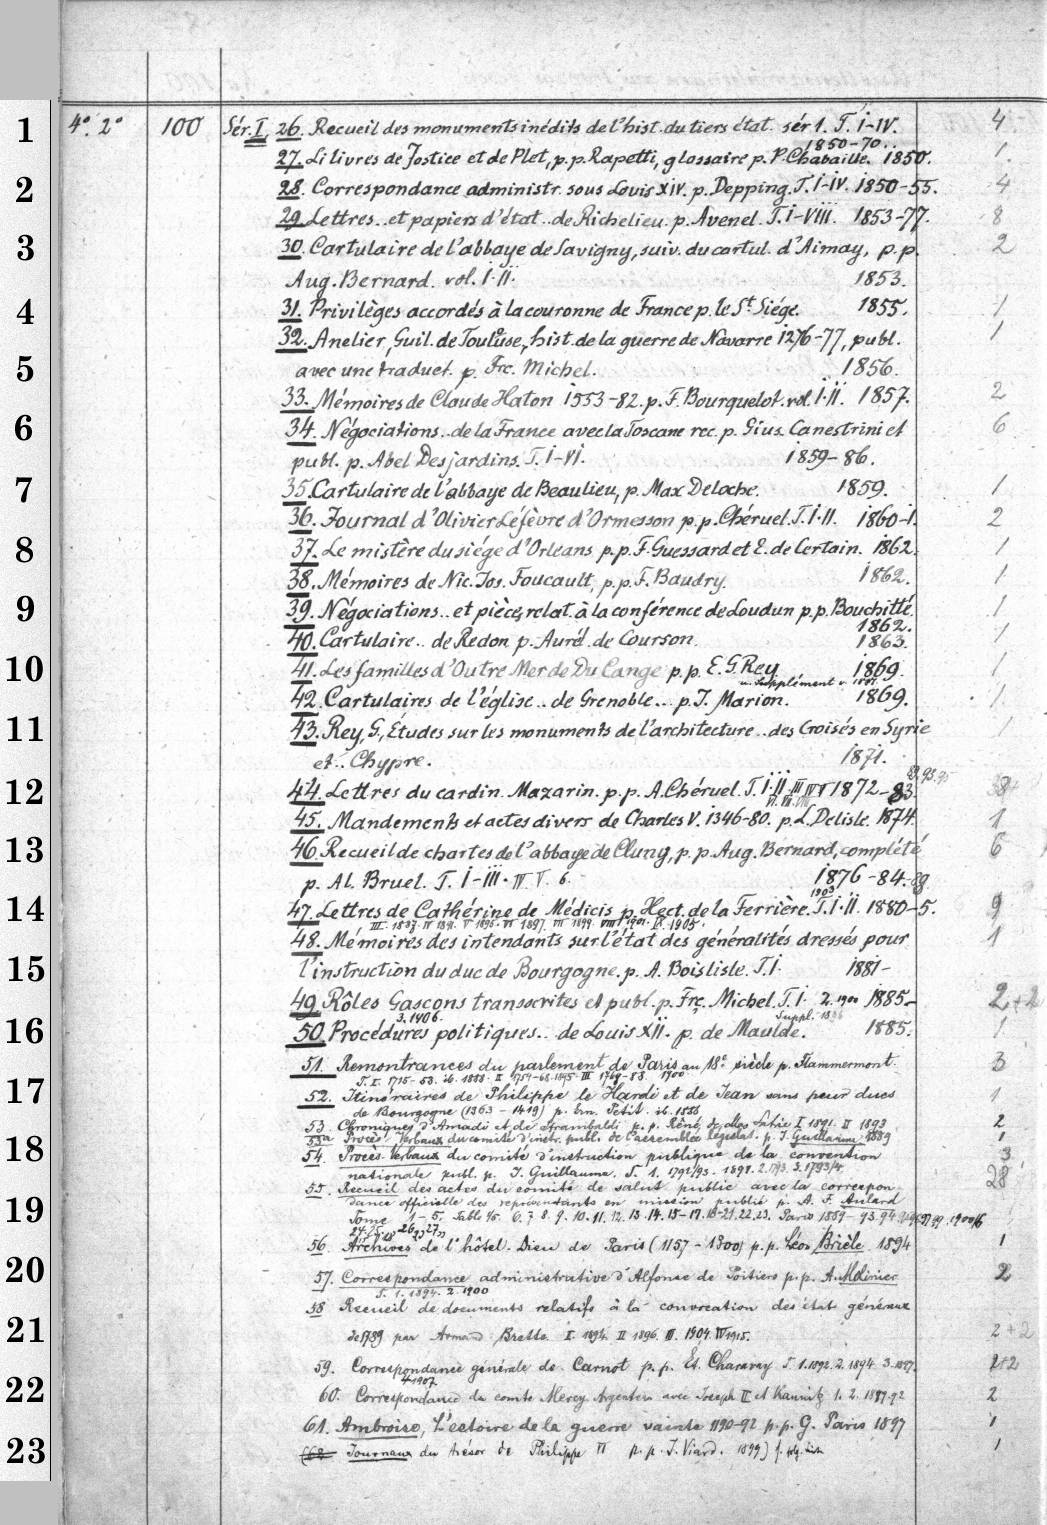 1 4°. 2° 100 Sér. I, 26. Recueil des monuments inédits de l'hist. du tiers état. sér 1. T. I-IV. 4
1850-70..
27. Li livres de Jostice et de Plet, p.p. Rapetti, glossaire p. P. Chabaille. 1850. 1.
2 28. Correspondance administr. sous Louis XIV. p. Depping. T. I-IV. 1850-55. 4
29. Lettres.. et papiers d'état.. de Richelieu. p. Avenel. T. I-VIII. 1853-77. 8
3 30. Cartulaire de l'abbaye de Savigny, suiv. du cartul. d'Ainay, p.p. 2
Aug. Bernard. vol. I.II. 1853.
4 31. Privilèges accordés à la couronne de France p. le St. Siége. 1855. 1
32. Anelier, Guil. de Toulouse, hist. de la guerre de Navarre 1276-77, publ. 1
5 avec une traduct. p. Frc. Michel. 1856.
33. Mémoires de Claude Haton 1553-82. p. F. Bourquelot. vol. I.II. 1857. 2
6 34. Négociations.. de la France avec la Toscane rec. p. Gius. Canestrini et 6
publ. p. Abel Desjardins. T. I-VI. 1859-86.
7 35. Cartulaire de l'abbaye de Beaulieu, p. Max. Deloche. 1859. 1
36. Journal d'Olivier Léfèvre d'Ormesson p.p. Chéruel. T. I.II. 1860-1. 2
8 37. Le mistère du siége d'Orléans p.p. F. Guessard et E. de Certain. 1862. 1
38. Mémoires de Nic. Jos. Foucault, p.p. F. Baudry. 1862. 1
9 39. Négociations.. et pièces, relat. à la conférence de Loudun p.p. Bouchitté. 1
1862.
40. Cartulaire.. de Redon p. Aurél. de Courson. 1863. 1
10 41. Les familles d'Outre Mer de Du Cange p.p. E. G. Rey 1869. 1
u. Supplément v.
42. Cartulaires de l'église.. de Grenoble... p. J. Marion. 1869. 1.
11 43. Rey, G., Études sur les monuments de l'architecture.. des Croisés en Syrie 1
et.. Chypre. 1871.
12 44. Lettres du cardin. Mazarin. p.p. A. Chéruel. T. I.II.III IV V 1872-83.
VI. VII. VIII
45. Mandements et actes divers de Charles V. 1346-80. p. L. Delisle. 1874. 1
13 46. Recueil de chartes de l'abbaye de Cluny, p.p. Aug. Bernard, complété 6
p. Al. Bruel. T. I-III. IV V. 6. 1876-84.
1903
14 47. Lettres de Cathérine de Médicis p. Hect. de la Ferrière. T. I.II. 1880-5. 9
III. 1887. IV 1891. V 1895. VI 1897. VII 1899. VIII 1901. IX. 1905.
48. Mémoires des intendants sur l'état des généralités dressés pour 1
15 l'instruction du duc de Bourgogne. p. A. Boislisle. T. I. 1881-
49. Rôles Gascons transscrites et publ. p. Frç. Michel. T. I. 2. 1900 1885- 2+2
3. 1906. Suppl. 1896
16 50. Procédures politiques.. de Louis XII. p. de Maulde. 1885. 1
51. Remontrances du parlement de Paris au 18e siècle p. Flammermont. 3
17 T. I. 1715-53. ib. 1888. II 1754-68. 1895. III 1768-88. 1900.
52. Itinéraires de Philippe le Hardi et de Jean sans peur ducs 1
de Bourgogne (1363-1419) p. Ern. Petit. ib. 1888
53. Chroniques d'Amadi et de Strambaldi p. p. Réné de Mas Latrie I 1891. II 1893 2
53a Procès Verbaux du comité d'instr. publ. de l'assemblée législat. p. J. Guillaume 1889 1
18 54. Procès Verbaux du comité d'instruction publique de la convention 3
nationale publ. p. J. Guillaume. T. 1. 1792/93. 1891. 2. 3. 1793/4.
55. Recueil des actes du comité de salut public avec la correspon 28
19 dance officielle des représentants en mission publié p. A. F. Aulard
Tome 1-5. 6. 7. 8. 9. 10. 11. 12. 13. 14. 15-17. 18-21. 22. 23. Paris 1889-93. 94
24. 25. 26 27
56. Archives de l'hôtel-Dieu de Paris (1157-1300) p.p. Léon Brièle 1894 1
20 57. Correspondance administrative d'Alfonse de Poitiers p.p. A. Molinier 2
T. 1. 1894. 2. 1900
58 Recueil de documents relatifs à la convocation des états généraux
21 de 1789 par Armand Brette I. 1894. II 1896. III. 1904. IV 1915. 2+2
59. Correspondance générale de Carnot p. p. Et. Charavay T. 1. 1892. 2. 1894 3. 1897. 2+2
4 1907
22 60. Correspondance du comte Mercy Argenteau avec Joseph II et Kaunitz 1. 2. 1889-92 2
61. Ambroise, L'estoire de la guerre sainte 1190-92 p.p. G. Paris 1897 1
23 (62. Journaux du trésor de Philippe VI p. p. J. Viard. 1899) 1